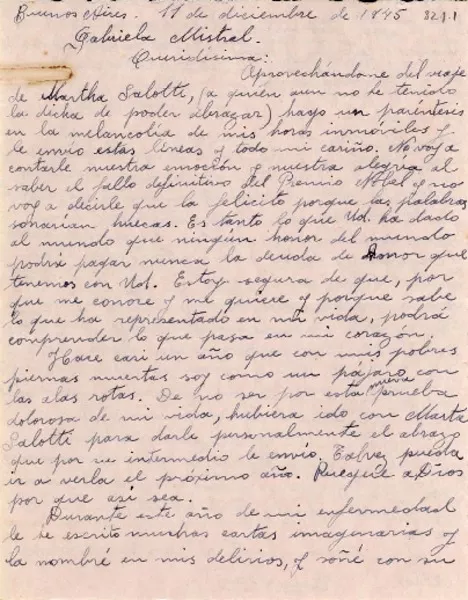 Buenos Aires. 11 de diciembre de 1945 82 J.1
Gabriela Mistral.
Queridísima:
Aprovechándome del viaje
de Martha Salotti, (a quién aun no he tenido
la dicha de poder abrazar) hago un paréntesis
en la melancolía de mis horas inmóviles y
le envío estas líneas y todo mi cariño. No voy a
contarle nuestra emoción y nuestra alegría al
saber el fallo definitivo del Premio Nóbel y no
voy a decirle que la felicito porque las palabras
sonarían huecas. Es tanto lo que Ud. ha dado
al mundo que ningún honor del mundo
podrá pagar nunca la deuda de Amor que
tenemos con Ud. Estoy segura de que, por
que me conoce y me quiere y porque sabe
lo que ha representado en mi vida, podrá
comprender lo que pasa en mi corazón.
Hace casi un año que con mis pobres
piernas muertas soy como un pájaro con
las alas rotas. De no ser por esta nueva prueba
dolorosa de mi vida, hubiera ido con Marta
Salotti para darle personalmente el abrazo
que por su intermedio le envío. Talvez pueda
ir a verla el próximo año. Ruéguele a Dios
por que así sea.
Durante este año de mi enfermedad
le he escrito muchas cartas imaginarias y
la nombré en mis delirios, y soñé con su